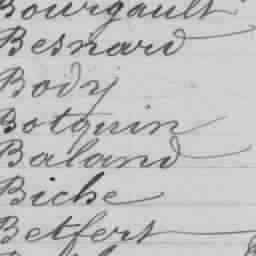 Bourgault
Besnard
Body
Botquin
Baland
Biche
Betfert